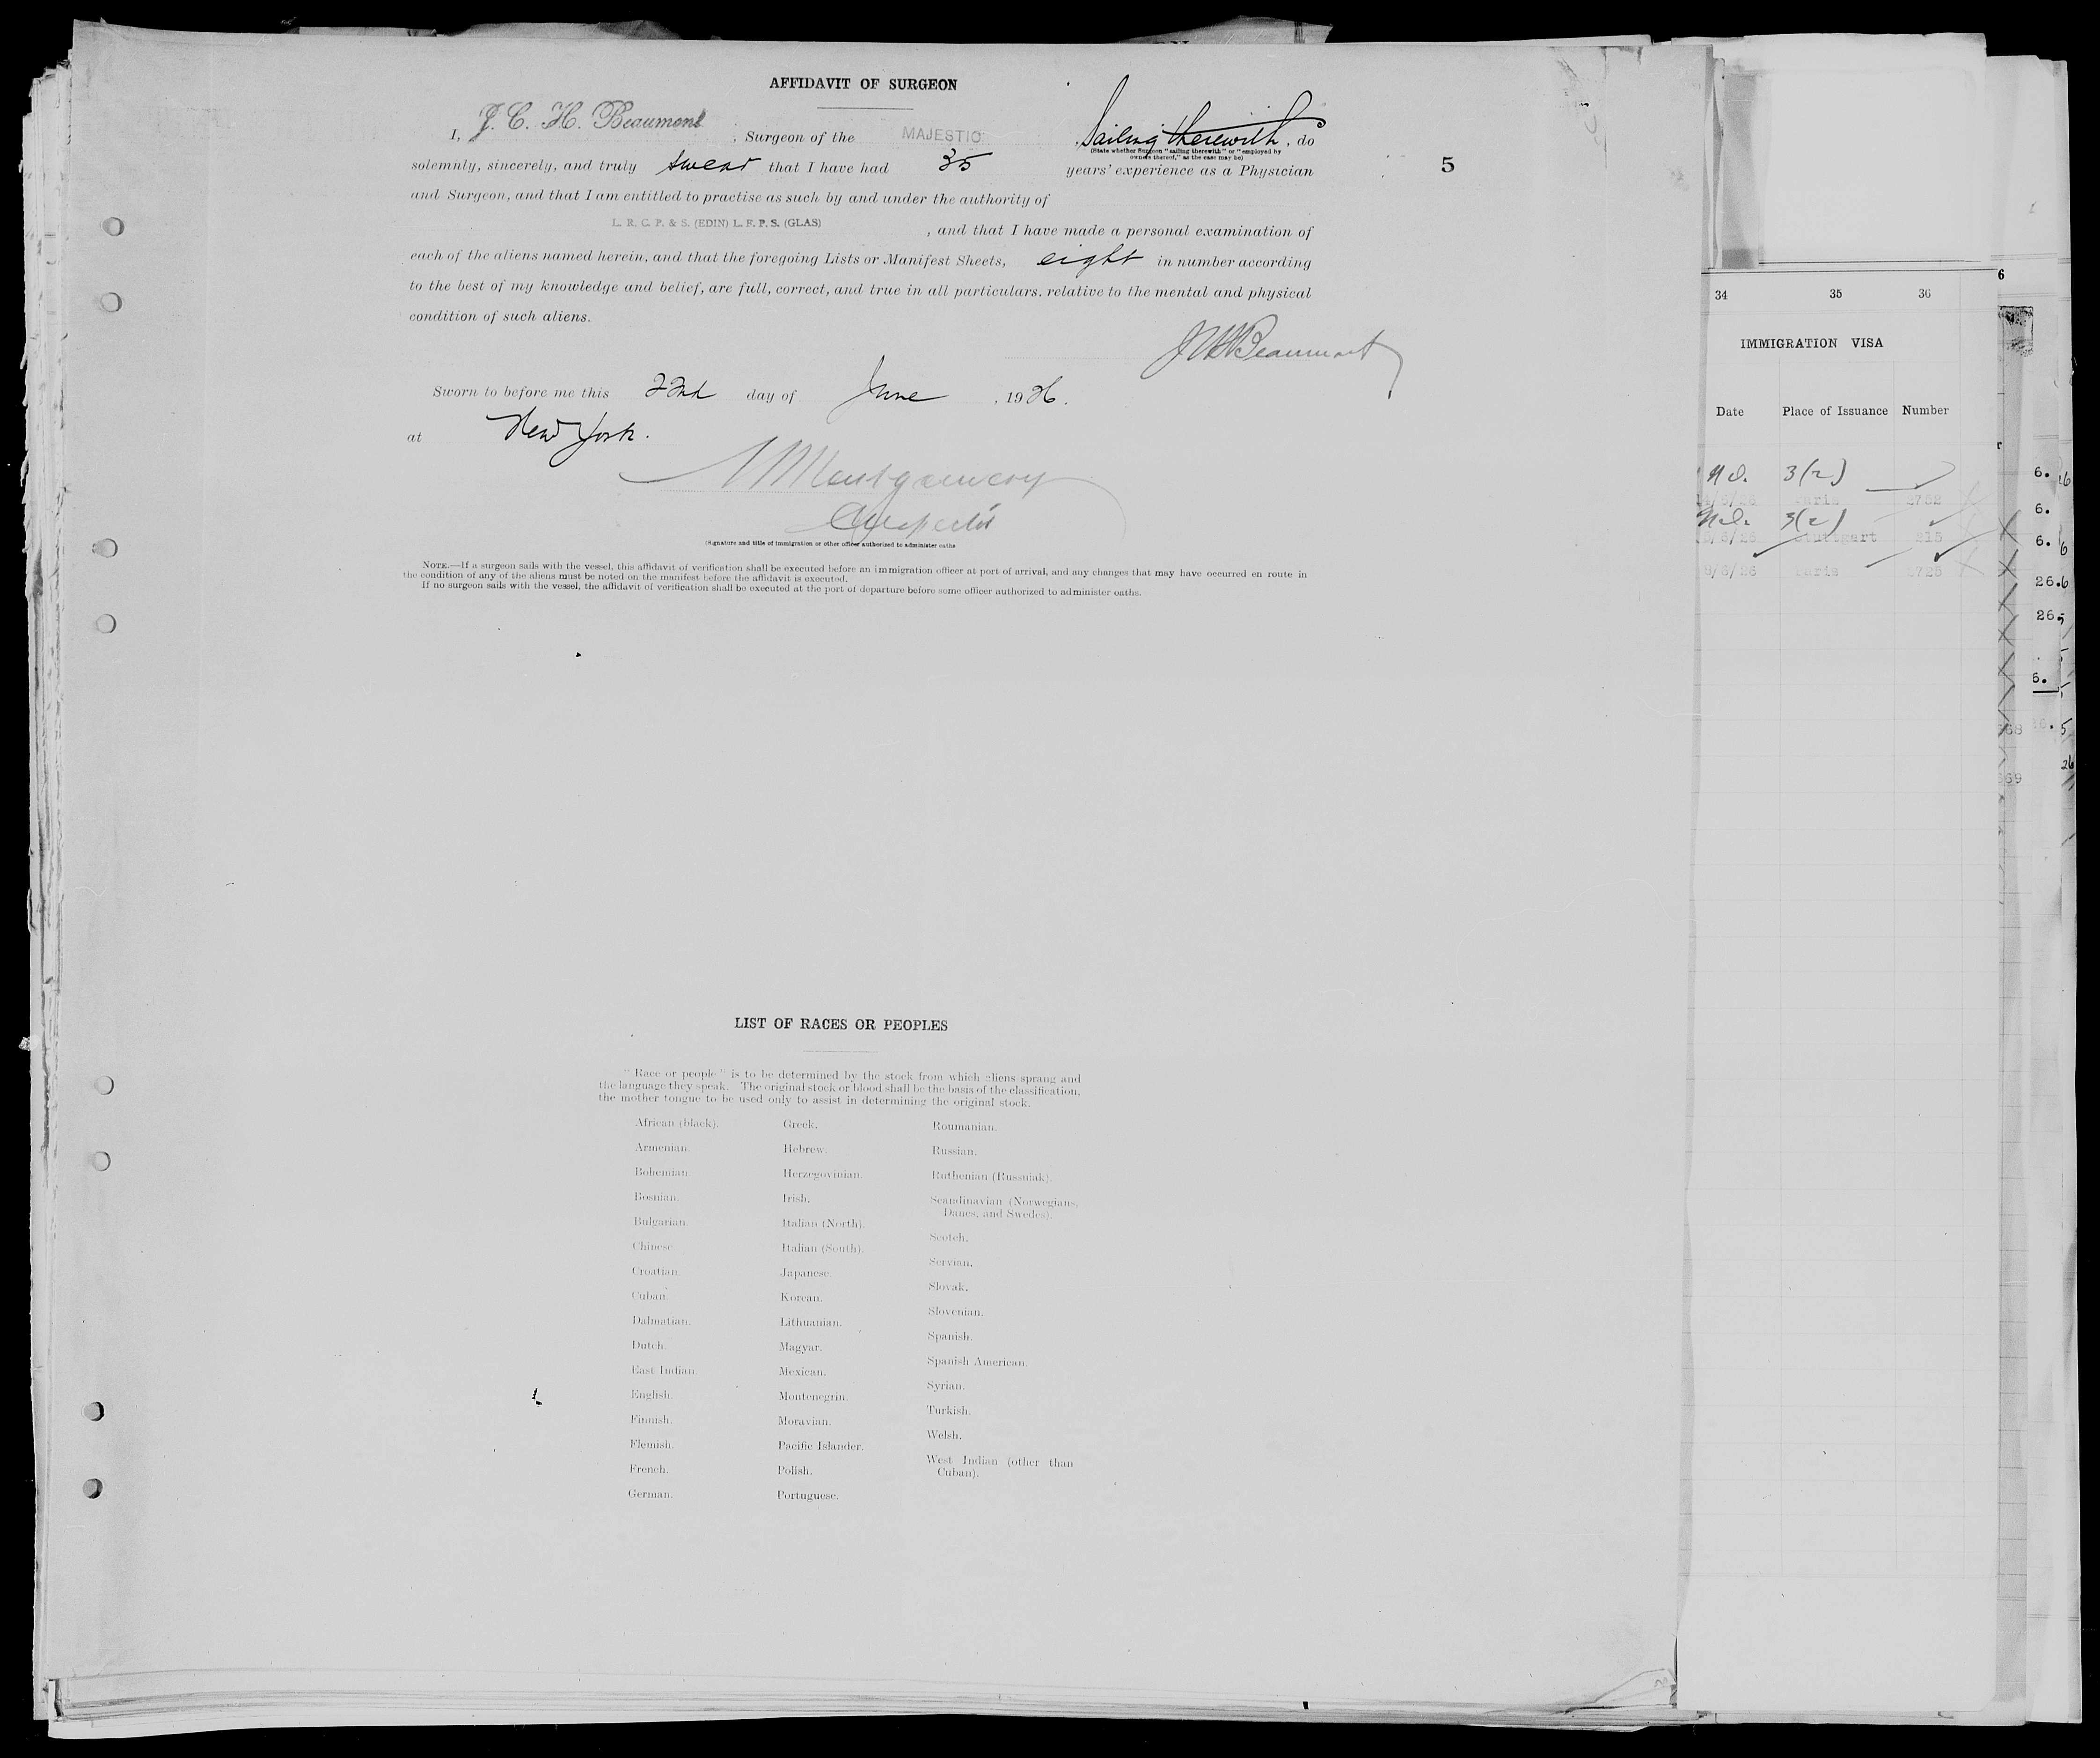 AFFIDAVIT OF SURGEON
I, J. C. H. Beaumont, Surgeon of the MAJESTIC, Sailing therewith, do
(State whether Surgeon "sailing therewith" or "employed by
owners thereof," as the case may be)
solemnly, sincerely, and truly swear that I have had 35 years' experience as a Physician
5
and Surgeon, and that I am entitled to practise as such by and under the authority of
L. R. C. P. & S. (EDIN) L. F. P. S. (GLAS), and that I have made a personal examination of
each of the aliens named herein, and that the foregoing Lists or Manifest Sheets, eight in number according
to the best of my knowledge and belief, are full, correct, and true in all particulars, relative to the mental and physical
condition of such aliens.
J C H Beaumont
Sworn to before me this 22nd day of June, 1926.
at New York.
Montgomery
(Signature and title of immigration or other officer authorized to administer oaths
NOTE.—If a surgeon sails with the vessel, this affidavit of verification shall be executed before an immigration officer at port of arrival, and any changes that may have occurred en route in
the condition of any of the aliens must be noted on the manifest before the affidavit is executed.
If no surgeon sails with the vessel, the affidavit of verification shall be executed at the port of departure before some officer authorized to administer oaths.
LIST OF RACES OR PEOPLES
"Race or people" is to be determined by the stock from which aliens sprang and
the language they speak. The original stock or blood shall be the basis of the classification,
the mother tongue to be used only to assist in determining the original stock.
African (black).
Armenian.
Bohemian.
Bosnian.
Bulgarian.
Chinese.
Croatian.
Cuban.
Dalmatian.
Dutch.
East Indian.
English.
Finnish.
Flemish.
French.
German.
Greek.
Hebrew.
Herzegovinian.
Irish.
Italian (North).
Italian (South).
Japanese.
Korean.
Lithuanian.
Magyar.
Mexican.
Montenegrin.
Moravian.
Pacific Islander.
Polish.
Portuguese.
Roumanian.
Russian.
Ruthenian (Russniak).
Scandinavian (Norwegians,
Danes, and Swedes).
Scotch.
Servian.
Slovak.
Slovenian.
Spanish.
Spanish American.
Syrian.
Turkish.
Welsh.
West Indian (other than
Cuban).
34 35 36
IMMIGRATION VISA
Date Place of Issuance Number
3(2)
3(2)
Stuttgart 215
6
6.
6.
6.
26.
26.
6.